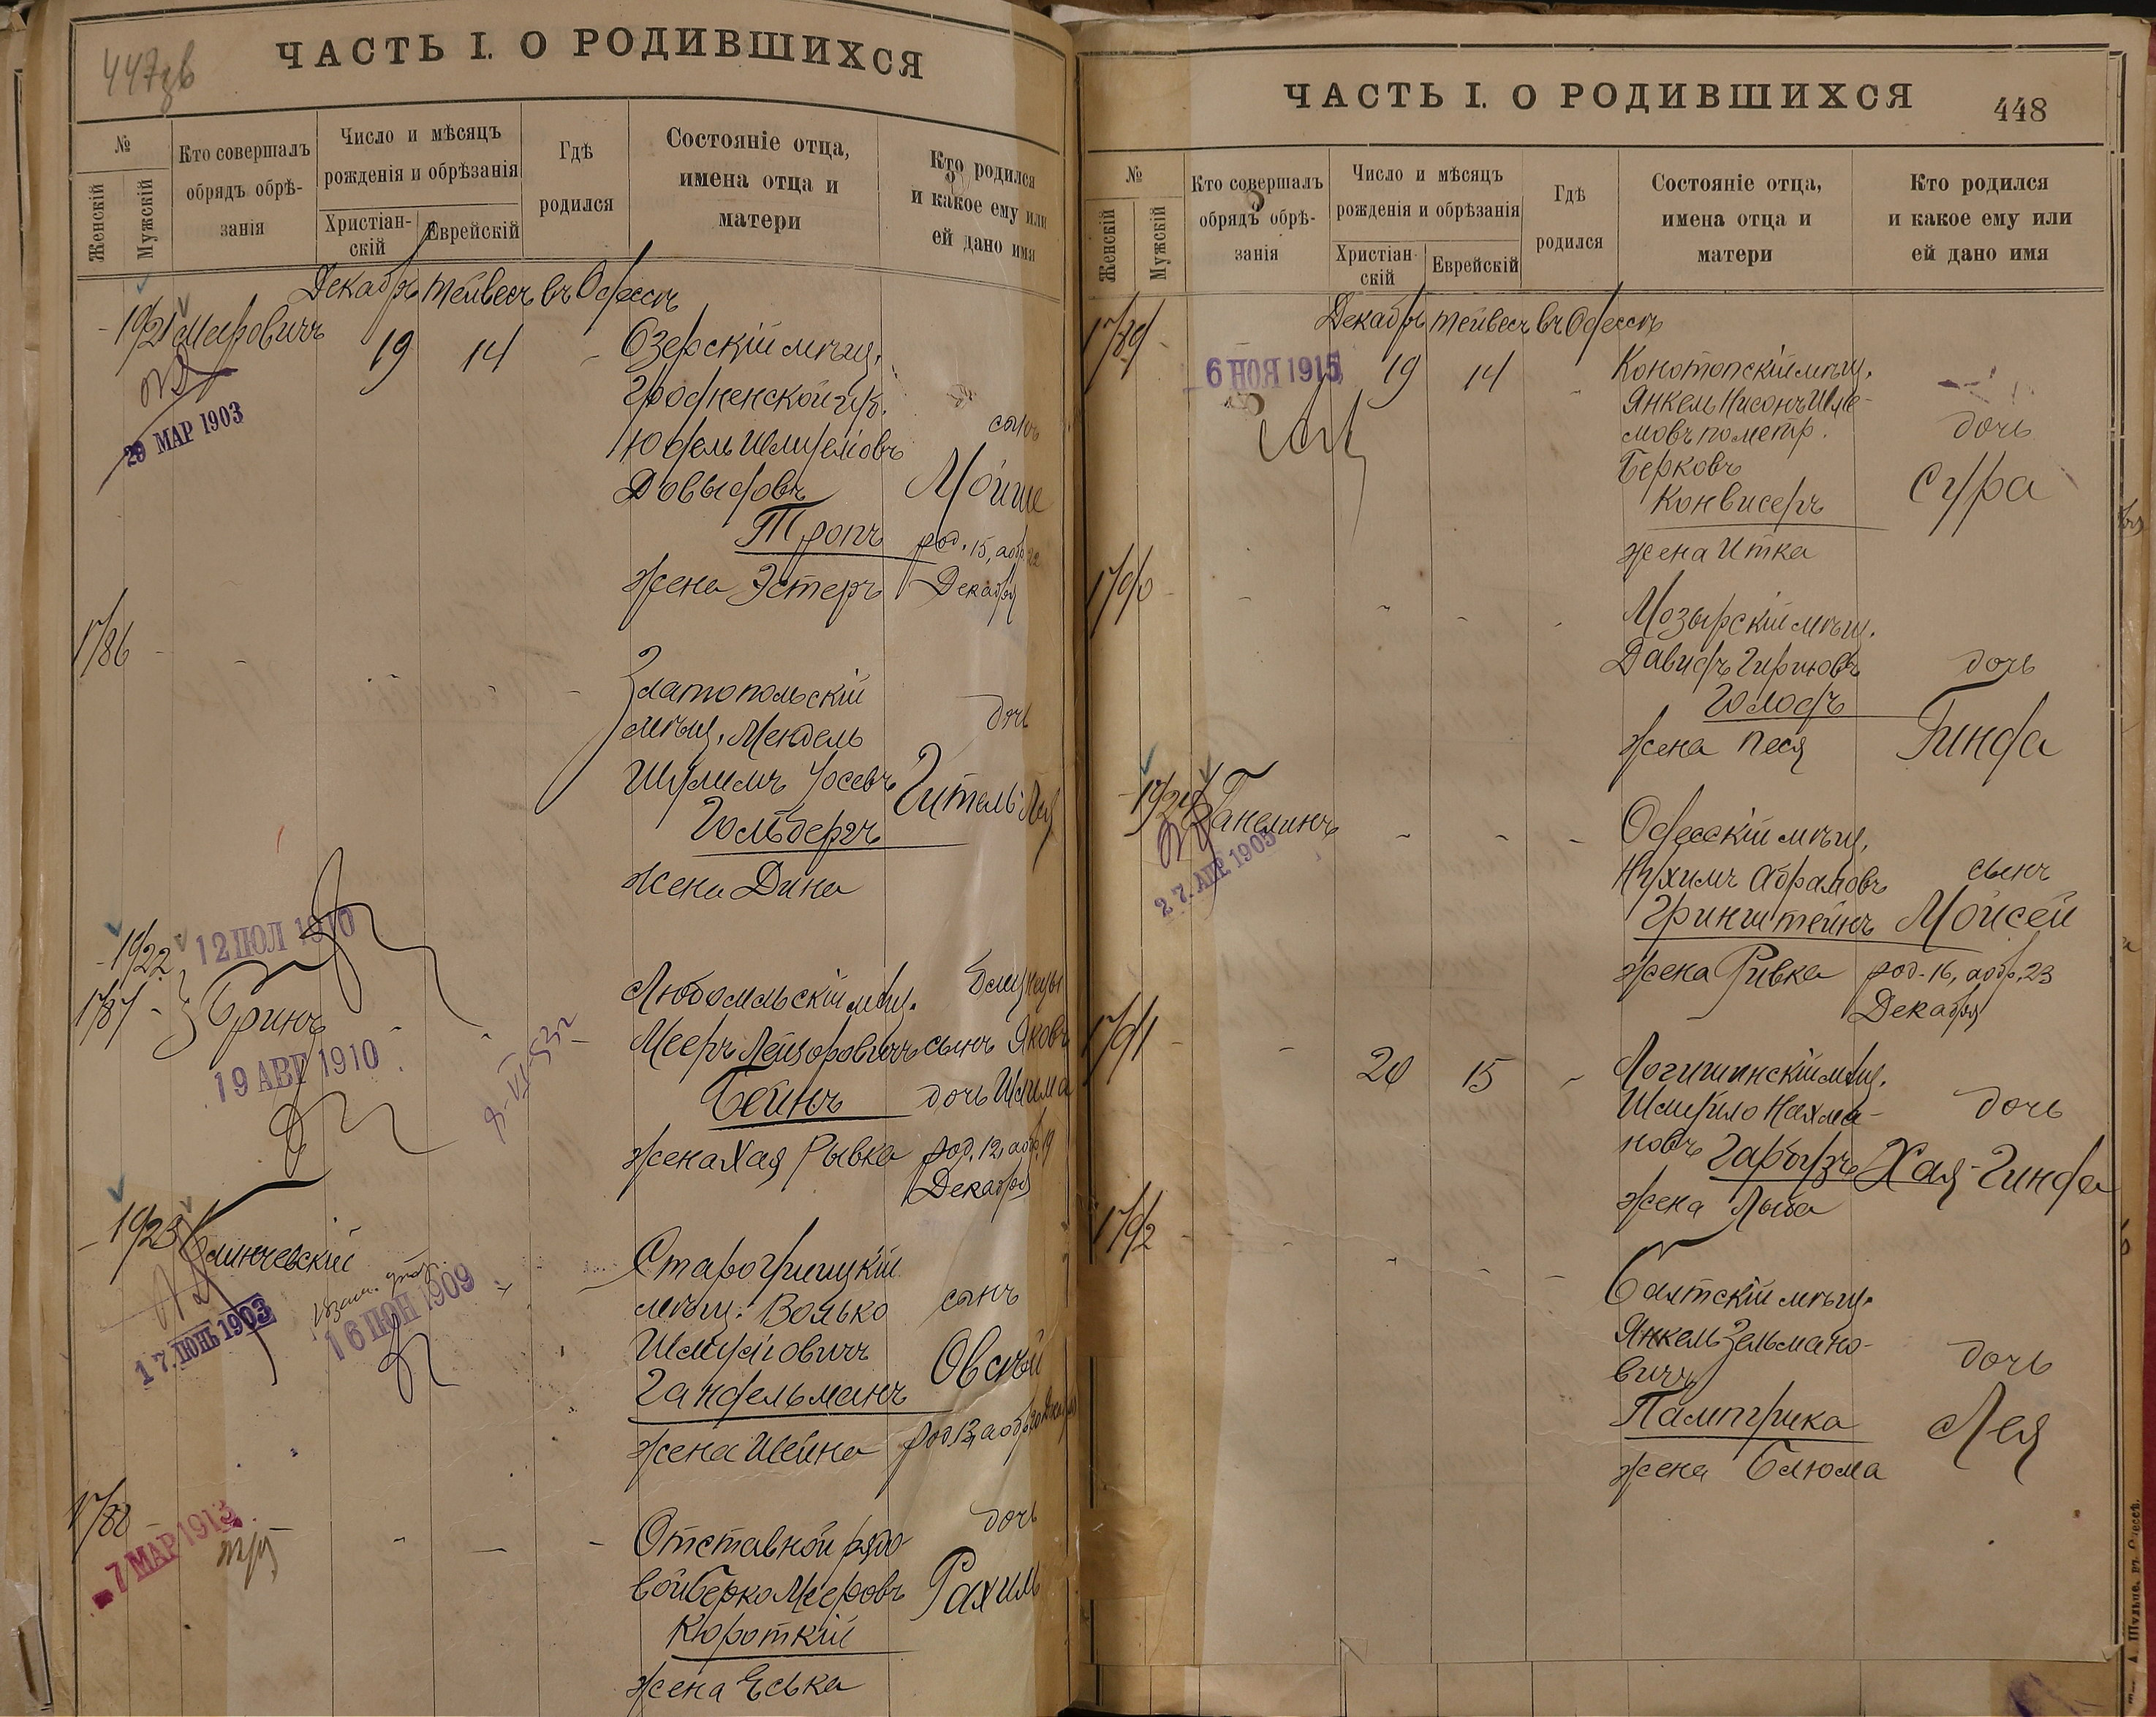 447 зв
ЧАСТЬ I. О РОДИВШИХСЯ
№
Женскій
Мужскій
Кто совершалъ
обрядъ обрѣ-
занія
Число и мѣсяцъ
рожденія и обрѣзанія
Христіан-
скій
Еврейскій
Гдѣ
родился
Состояніе отца,
имена отца и
матери
Кто родился
и какое ему или
ей дано имя
Декабрь тейвесъ въ Одессѣ
1921 Меировичъ 19 14
29 МАР 1903
Озерскій мѣщ.
Гродненской губ.
Юдель
Довыдовъ
Тропъ
жена Эстеръ
сынъ
Мойше
род. 15, а обр. 22
Декабря
1786
Златопольскій
мѣщ. Мендель
Шулимъ Іосевъ
Гольбергъ
жена Дина
дочь
Гитель Лея
1922
1787
12 ІЮЛ 1910
Бринъ
19 АВГ 1910
Любомльскій мѣщ.
Мееръ Лейзоровичъ
Бейнъ
жена Хая Рывка
близнецы
сынъ Яковъ
дочь Шлима
род. 12, а обр. 19
Декабря
1923 Блинчевскій
17. ІЮНЬ 1903
16 ІЮН 1909
мѣщ. Волько
Шмулiовичъ
Гандельманъ
жена Шейна
сынъ
Овсѣй
род. 13, а обр. 20 Декабря
1788
7 МАР 1913
Отставной рядо
вой Берко Мееровъ
Короткій
жена Еська
дочь
Рахиль
ЧАСТЬ I. О РОДИВШИХСЯ
448
№
Женскій
Мужскій
Кто совершалъ
обрядъ обрѣ-
занія
Число и мѣсяцъ
рожденія и обрѣзанія
Христіан-
скій
Еврейскій
Гдѣ
родился
Состояніе отца,
имена отца и
матери
Кто родился
и какое ему или
ей дано имя
Декабрь тейвесъ въ Одессѣ
1789
6 НОЯ 1915
19 14
Конотопскій мѣщ.
Янкель Нисонъ Шле-
мовъ по метр.
Берковъ
Конвисеръ
жена Итка
дочь
Сура
1790
Мозырскій мѣщ.
Давидъ Гиршовъ
Голодъ
жена Песя
дочь
Гинда
1924 Ганелинъ
27. АПР 1905
Одесскій мѣщ.
Нухимъ Абрамовъ
Гринштейнъ
жена Ривка
сынъ
Мойсей
род. 16, а обр. 23
Декабря
1791
20 15
Логишинскій мѣщ.
Шмуйло Нахма-
новъ Гарбузъ
жена Лыба
дочь
Хая-Гинда
1792
Балтскій мѣщ.
Янкель Зельмано-
вичъ
Пампурика
жена Блюма
дочь
Лея